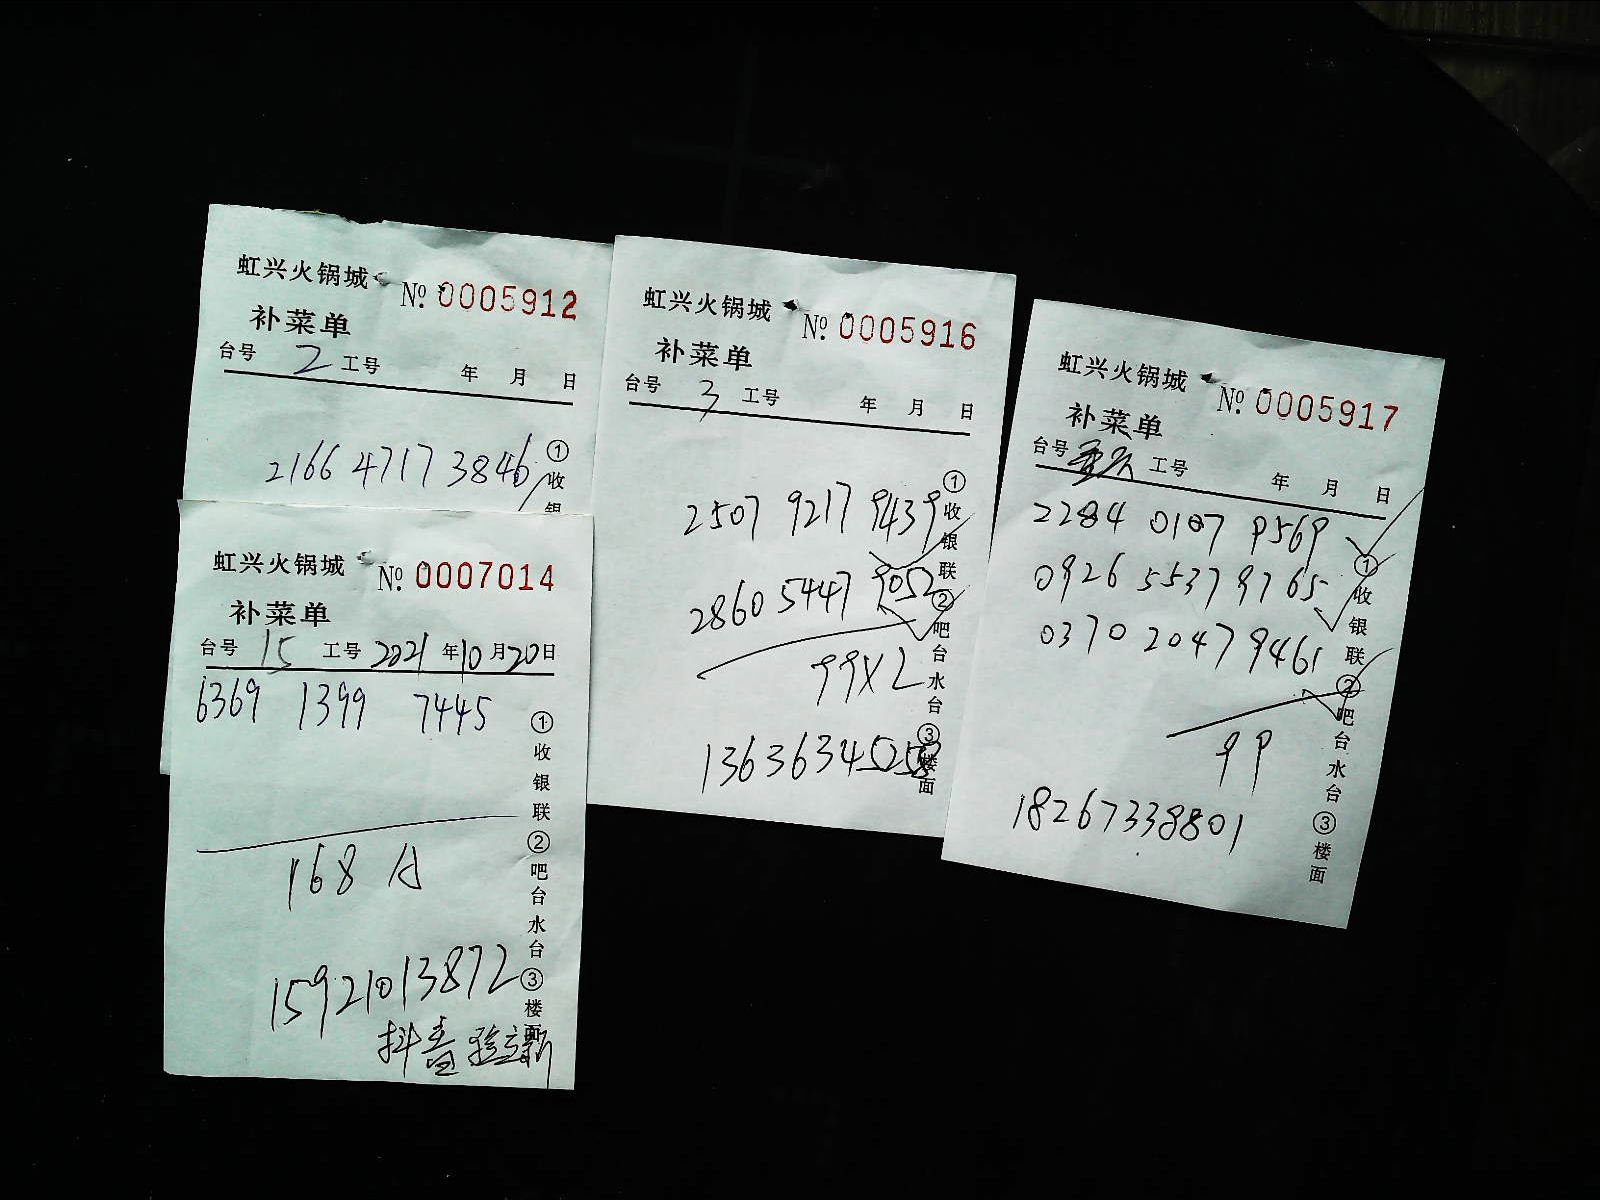 虹兴火锅城 №. 0005912
补菜单
台号 2 工号 年 月 日
2166 4717 3846
①收银
虹兴火锅城 №. 0007014
补菜单
台号 15 工号 2021 年 10 月 20 日
6369 1399 7445
168 A
15921013872
抖音
①收银联②吧台水台③楼面
虹兴火锅城 №. 0005916
补菜单
台号 3 工号 年 月 日
2507 9217 9439
2860 5447 9052
99X2
①收银联②吧台水台③楼面
虹兴火锅城 №. 0005917
补菜单
台号 工号 年 月 日
2284 0187 9569
0926 5537 9765
0370 2047 9461
99
18267338801
①收银联②吧台水台③楼面